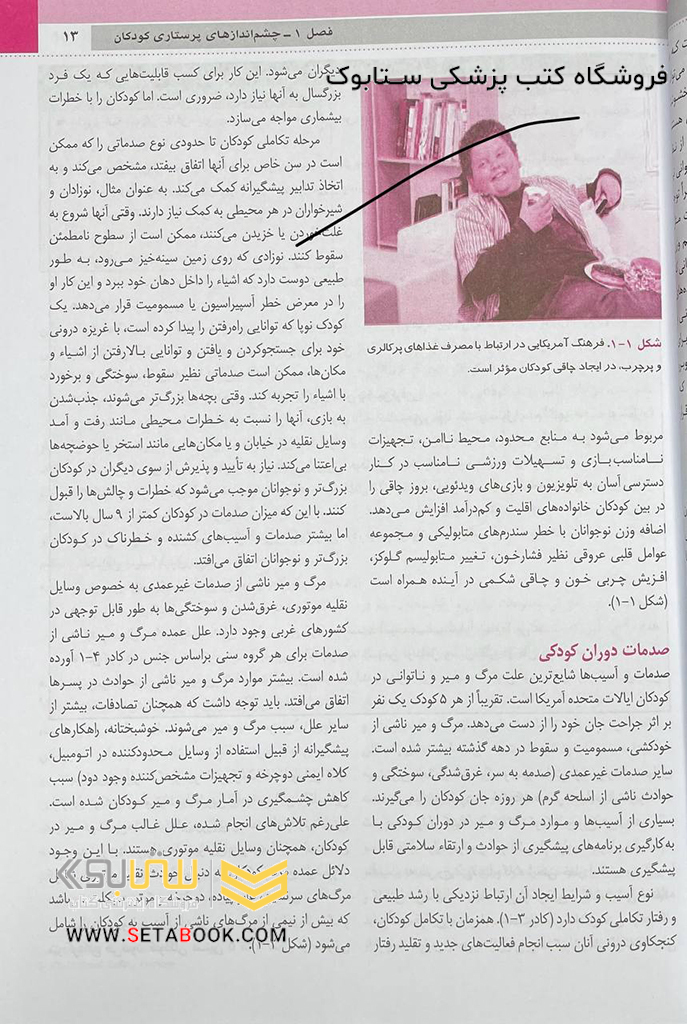 فصل ۱ ـ چشم‌اندازهای پرستاری کودکان
۱۳
فروشگاه کتب پزشکی ستابوک
شکل ۱-۱. فرهنگ آمریکایی در ارتباط با مصرف غذاهای پرکالری
و پرچرب، در ایجاد چاقی کودکان مؤثر است.
مربوط می‌شود به منابع محدود، محیط ناامن، تجهیزات
نامناسب بازی و تسهیلات ورزشی نامناسب در کنار
دسترسی آسان به تلویزیون و بازی‌های ویدئویی، بروز چاقی را
در بین کودکان خانواده‌های اقلیت و کم‌درآمد افزایش می‌دهد.
اضافه وزن نوجوانان با خطر سندرم‌های متابولیکی و مجموعه
عوامل قلبی عروقی نظیر فشارخون، تغییر متابولیسم گلوکز،
افزیش چربی خون و چاقی شکمی در آینده همراه است
(شکل ۱-۱).
صدمات دوران کودکی
صدمات و آسیب‌ها شایع‌ترین علت مرگ و میر و ناتوانی در
کودکان ایالات متحده آمریکا است. تقریباً از هر ۵ کودک یک نفر
بر اثر جراحت جان خود را از دست می‌دهد. مرگ و میر ناشی از
خودکشی، مسمومیت و سقوط در دهه گذشته بیشتر شده است.
سایر صدمات غیرعمدی (صدمه به سر، غرق‌شدگی، سوختگی و
حوادث ناشی از اسلحه گرم) هر روزه جان کودکان را می‌گیرند.
بسیاری از آسیب‌ها و موارد مرگ و میر در دوران کودکی با
به‌کارگیری برنامه‌های پیشگیری از حوادث و ارتقاء سلامتی قابل
پیشگیری هستند.
نوع آسیب و شرایط ایجاد آن ارتباط نزدیکی با رشد طبیعی
و رفتار تکاملی کودک دارد (کادر ۳-۱). همزمان با تکامل کودکان،
کنجکاوی درونی آنان سبب انجام فعالیت‌های جدید و تقلید رفتار
دیگران می‌شود. این کار برای کسب قابلیت‌هایی که یک فرد
بزرگسال به آنها نیاز دارد، ضروری است. اما کودکان را با خطرات
بیشماری مواجه می‌سازد.
مرحله تکاملی کودکان تا حدودی نوع صدماتی را که ممکن
است در سن خاص برای آنها اتفاق بیفتد، مشخص می‌کند و به
اتخاذ تدابیر پیشگیرانه کمک می‌کند. به عنوان مثال، نوزادان و
شیرخواران در هر محیطی به کمک نیاز دارند. وقتی آنها شروع به
غلت‌خوردن یا خزیدن می‌کنند، ممکن است از سطوح نامطمئن
سقوط کنند. نوزادی که روی زمین سینه‌خیز می‌رود، به طور
طبیعی دوست دارد که اشیاء را داخل دهان خود ببرد و این کار او
را در معرض خطر آسپیراسیون یا مسمومیت قرار می‌دهد. یک
کودک نوپا که توانایی راه‌رفتن را پیدا کرده است، با غریزه درونی
خود برای جستجوکردن و یافتن و توانایی بالارفتن از اشیاء و
مکان‌ها، ممکن است صدماتی نظیر سقوط، سوختگی و برخورد
با اشیاء را تجربه کند. وقتی بچه‌ها بزرگ‌تر می‌شوند، جذب‌شدن
به بازی، آنها را نسبت به خطرات محیطی مانند رفت و آمد
وسایل نقلیه در خیابان و یا مکان‌هایی مانند استخر یا حوضچه‌ها
بی‌اعتنا می‌کند. نیاز به تأیید و پذیرش از سوی دیگران در کودکان
بزرگ‌تر و نوجوانان موجب می‌شود که خطرات و چالش‌ها را قبول
کنند. با این که میزان صدمات در کودکان کمتر از ۹ سال بالاست،
اما بیشتر صدمات و آسیب‌های کشنده و خطرناک در کودکان
بزرگ‌تر و نوجوانان اتفاق می‌افتد.
مرگ و میر ناشی از صدمات غیرعمدی به خصوص وسایل
نقلیه موتوری، غرق‌شدن و سوختگی‌ها به طور قابل توجهی در
کشورهای غربی وجود دارد. علل عمده مرگ و میر ناشی از
صدمات برای هر گروه سنی براساس جنس در کادر ۴-۱ آورده
شده است. بیشتر موارد مرگ و میر ناشی از حوادث در پسرها
اتفاق می‌افتد. باید توجه داشت که همچنان تصادفات، بیشتر از
سایر علل، سبب مرگ و میر می‌شوند. خوشبختانه، راهکارهای
پیشگیرانه از قبیل استفاده از وسایل محدودکننده در اتومبیل،
کلاه ایمنی دوچرخه و تجهیزات مشخص‌کننده وجود دود) سبب
کاهش چشمگیری در آمار مرگ و میر کودکان شده است.
علی‌رغم تلاش‌های انجام شده، علل غالب مرگ و میر در
کودکان، همچنان وسایل نقلیه موتوری هستند. با این وجود
دلائل عمده مرگ کودکان به دنبال حوادث نقلیه
مرگ‌های سرنشینان، پیاده، دوچرخه، موتورسیکلت باشد
که بیش از نیمی از مرگ‌های ناشی از آسیب به کودکان را شامل
می‌شود (شکل ۱-۱).
ستابوک
WWW.SETABOOK.COM